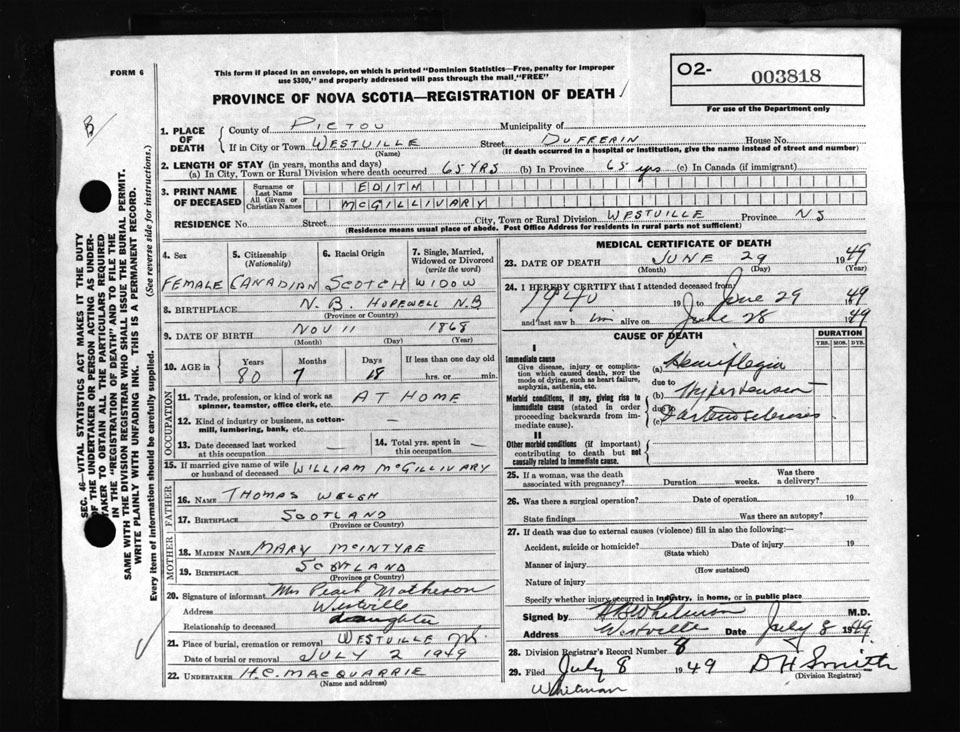 FORM 6
This form if placed in an envelope, on which is printed "Dominion Statistics—Free, penalty for improper
use $300," and properly addressed will pass through the mail "FREE"
O2- 003818
For use of the Department only
PROVINCE OF NOVA SCOTIA—REGISTRATION OF DEATH
B/
1. PLACE OF DEATH
County of PICTOU Municipality of
If in City or Town WESTVILLE Street DUFFERIN House No.
(Name) (If death occurred in a hospital or institution, give the name instead of street and number)
2. LENGTH OF STAY (in years, months and days)
(a) In City, Town or Rural Division where death occurred 65 YRS (b) In Province 65 yrs (c) In Canada (if immigrant)
3. PRINT NAME OF DECEASED
Surname or Last Name EDITH
All Given or Christian Names McGILLIVARY
RESIDENCE No. Street City, Town or Rural Division WESTVILLE Province NS
(Residence means usual place of abode. Post Office Address for residents in rural parts not sufficient)
4. Sex 5. Citizenship (Nationality) 6. Racial Origin 7. Single, Married, Widowed or Divorced (write the word)
FEMALE CANADIAN SCOTCH WIDOW
8. BIRTHPLACE N.B. HOPEWELL N.B
(Province or Country)
9. DATE OF BIRTH NOV 11 1868
(Month) (Day) (Year)
10. AGE in Years Months Days If less than one day old
80 7 18 hrs. or min.
OCCUPATION
11. Trade, profession, or kind of work as spinner, teamster, office clerk, etc. AT HOME
12. Kind of industry or business, as cotton-mill, lumbering, bank, etc. —
13. Date deceased last worked at this occupation — 14. Total yrs. spent in this occupation —
15. If married give name of wife or husband of deceased WILLIAM McGILLIVARY
FATHER
16. NAME THOMAS WELSH
17. BIRTHPLACE SCOTLAND
(Province or Country)
MOTHER
18. MAIDEN NAME MARY McINTYRE
19. BIRTHPLACE SCOTLAND
(Province or Country)
20. Signature of informant Mrs Pearl Matheson
Address Westville
Relationship to deceased daughter
21. Place of burial, cremation or removal WESTVILLE N.S.
Date of burial or removal JULY 2 1949
22. UNDERTAKER H.C. MACQUARRIE
(Name and address)
MEDICAL CERTIFICATE OF DEATH
23. DATE OF DEATH JUNE 29 1949
(Month) (Day) (Year)
24. I HEREBY CERTIFY that I attended deceased from
1940 19 to June 29 1949
and last saw h im alive on June 28 1949
CAUSE OF DEATH DURATION
YRS. MOS. DYS.
I
Immediate cause
Give disease, injury or complication which caused death, NOT the mode of dying, such as heart failure, asphyxia, asthenia, etc.
(a) Hemiplegia
due to
Morbid conditions, if any, giving rise to immediate cause (stated in order proceeding backwards from immediate cause).
(b) Hypertension
due to
(c) Arteriosclerosis
II
Other morbid conditions (if important) contributing to death but not causally related to immediate cause.
25. If a woman, was the death associated with pregnancy? Duration weeks. Was there a delivery?
26. Was there a surgical operation? Date of operation 19
State findings Was there an autopsy?
27. If death was due to external causes (violence) fill in also the following:—
Accident, suicide or homicide? Date of injury 19
(State which)
Manner of injury
(How sustained)
Nature of injury
Specify whether injury occurred in industry, in home, or in public place
Signed by Whitman M.D.
Address Westville Date July 8 1949.
28. Division Registrar's Record Number 8
29. Filed July 8 1949 D H Smith
(Division Registrar)
Whitman
SEC. 46—VITAL STATISTICS ACT MAKES IT THE DUTY
OF THE UNDERTAKER OR PERSON ACTING AS UNDER-
TAKER TO OBTAIN ALL THE PARTICULARS REQUIRED
IN THE "REGISTRATION OF DEATH" AND TO FILE THE
SAME WITH THE DIVISION REGISTRAR WHO SHALL ISSUE THE BURIAL PERMIT.
WRITE PLAINLY WITH UNFADING INK. THIS IS A PERMANENT RECORD.
Every item of information should be carefully supplied. (See reverse side for instructions.)